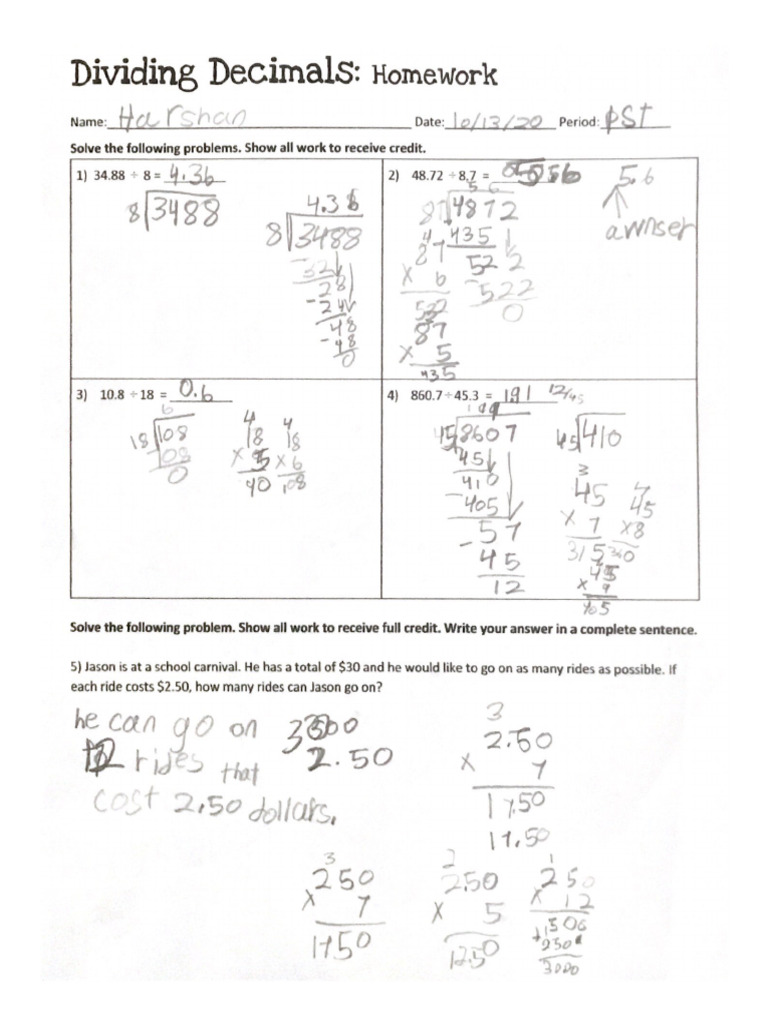 Dividing Decimals: Homework
Name: Harshan Date: 10/13/20 Period: PST
Solve the following problems. Show all work to receive credit.
1) 34.88 ÷ 8 = 4.36
8 3488
4.36
8 3488
-32
28
-24
48
-48
0
2) 48.72 ÷ 8.7 =
5.6
awnser
5 6
87 4872
435
522
-522
0
87
x 6
522
87
x 5
435
3) 10.8 ÷ 18 = 0.6
6
18 108
108
0
4
18
x 5
40
4
18
x 6
108
4) 860.7 ÷ 45.3 = 191 12/45
45 8607
45
410
-405
57
- 45
12
45 410
3
45
x 7
315
45
x8
360
45
x 9
405
Solve the following problem. Show all work to receive full credit. Write your answer in a complete sentence.
5) Jason is at a school carnival. He has a total of $30 and he would like to go on as many rides as possible. If
each ride costs $2.50, how many rides can Jason go on?
he can go on
12 rides that
cost 2.50 dollars.
2.50
3
2.50
x 7
17.50
17.50
3
250
x 7
1750
2
2.50
x 5
1250
1
250
x 12
+250
3000